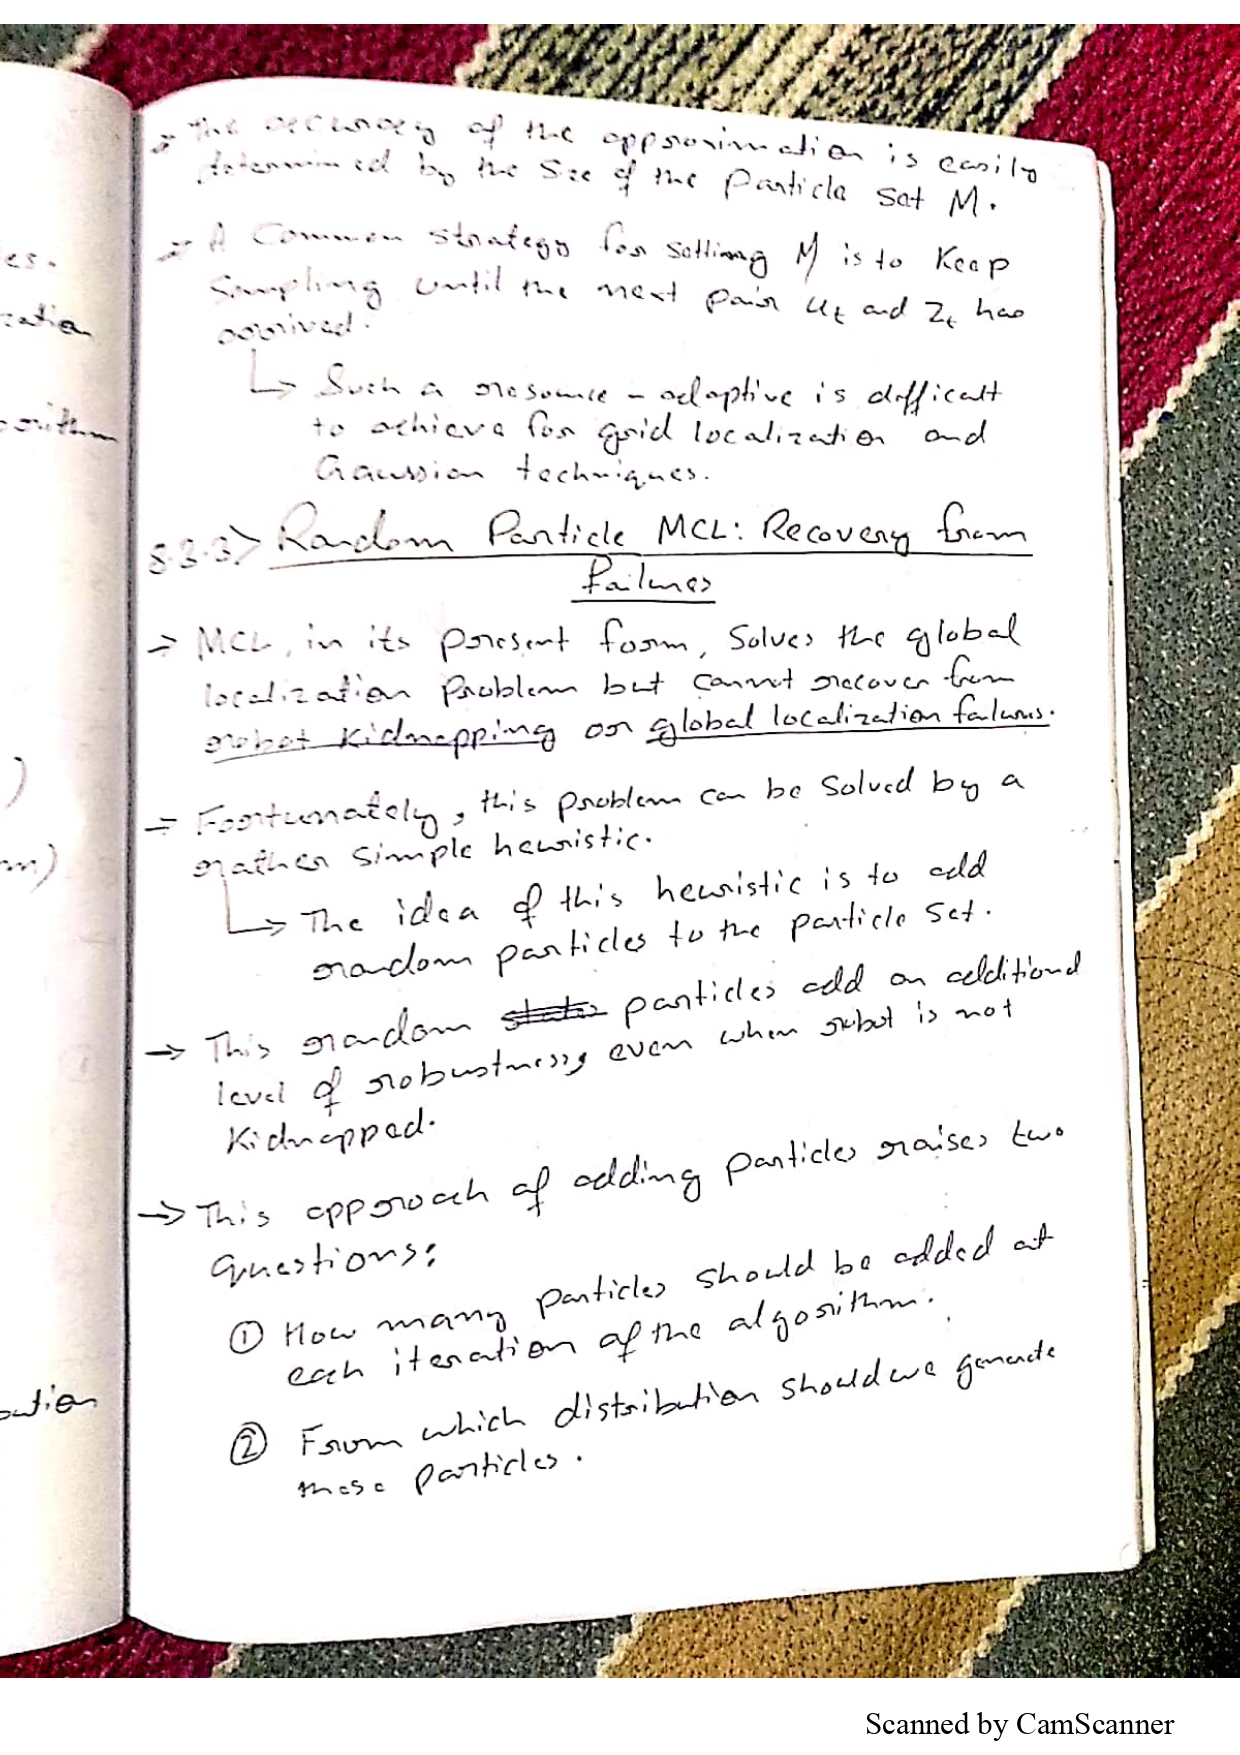 → The accuracy of the approximation is easily
determined by the Size of the Particle Set M.
→ A Common strategy for setting M is to Keep
Sampling until the next pair u_t and z_t has
arrived.
↳ Such a resource - adaptive is difficult
to achieve for grid localization and
Gaussian techniques.
8.3.3> Random Particle MCL: Recovery from
Failures
→ MCL, in its present form, Solves the global
localization Problem but cannot recover from
robot kidnapping or global localization failures.
→ Foortunately, this problem can be Solved by a
rather simple heuristic.
↳ The idea of this heuristic is to add
random particles to the particle Set.
→ This random particles add an additional
level of robustness, even when robot is not
Kidnapped.
→ This approach of adding particles raises two
Questions:
① How many particles should be added at
each iteration of the algorithm.
② From which distribution should we generate
these particles.
es.
zation
orithm
)
m)
bution
Scanned by CamScanner